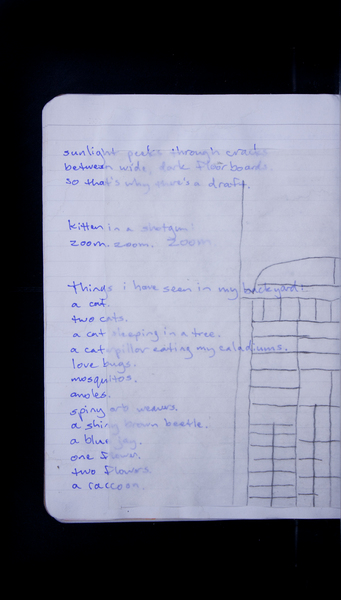 sunlight peeks through cracks
between wide, dark floorboards
so that's why there's a draft.
kitten in a shotgun:
zoom. zoom. zoom
Things i have seen in my backyard:
a cat.
two cats.
a cat sleeping in a tree.
a caterpillar eating my caladiums.
love bugs.
mosquitos.
anoles.
spiny orb weavers.
a shiny brown beetle.
a blue jay.
one flower.
two flowers.
a raccoon.